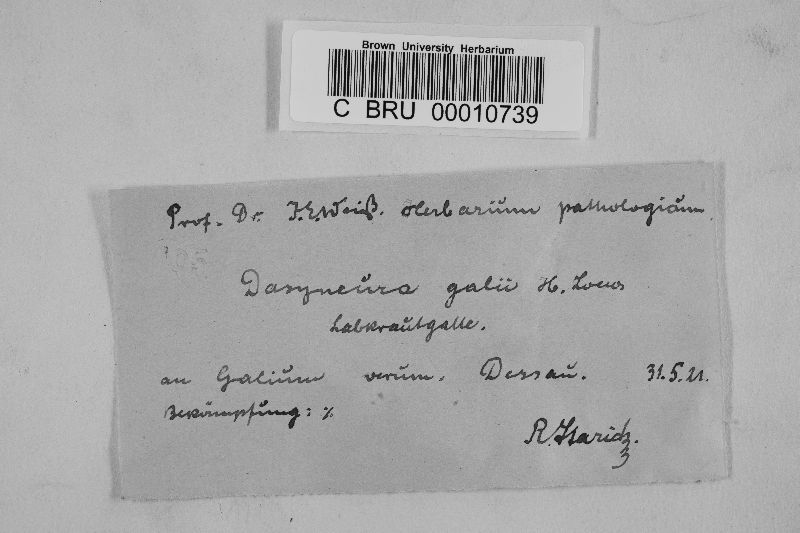 Brown University Herbarium
C BRU 00010739
Prof. Dr. J.E. Weiß. Herbarium pathologicum.
Dasyneura galii H. Loew
Labkrautgalle.
an Galium verum. Dessau. 31.5.21.
Bekämpfung: ٪
R. Staritz.